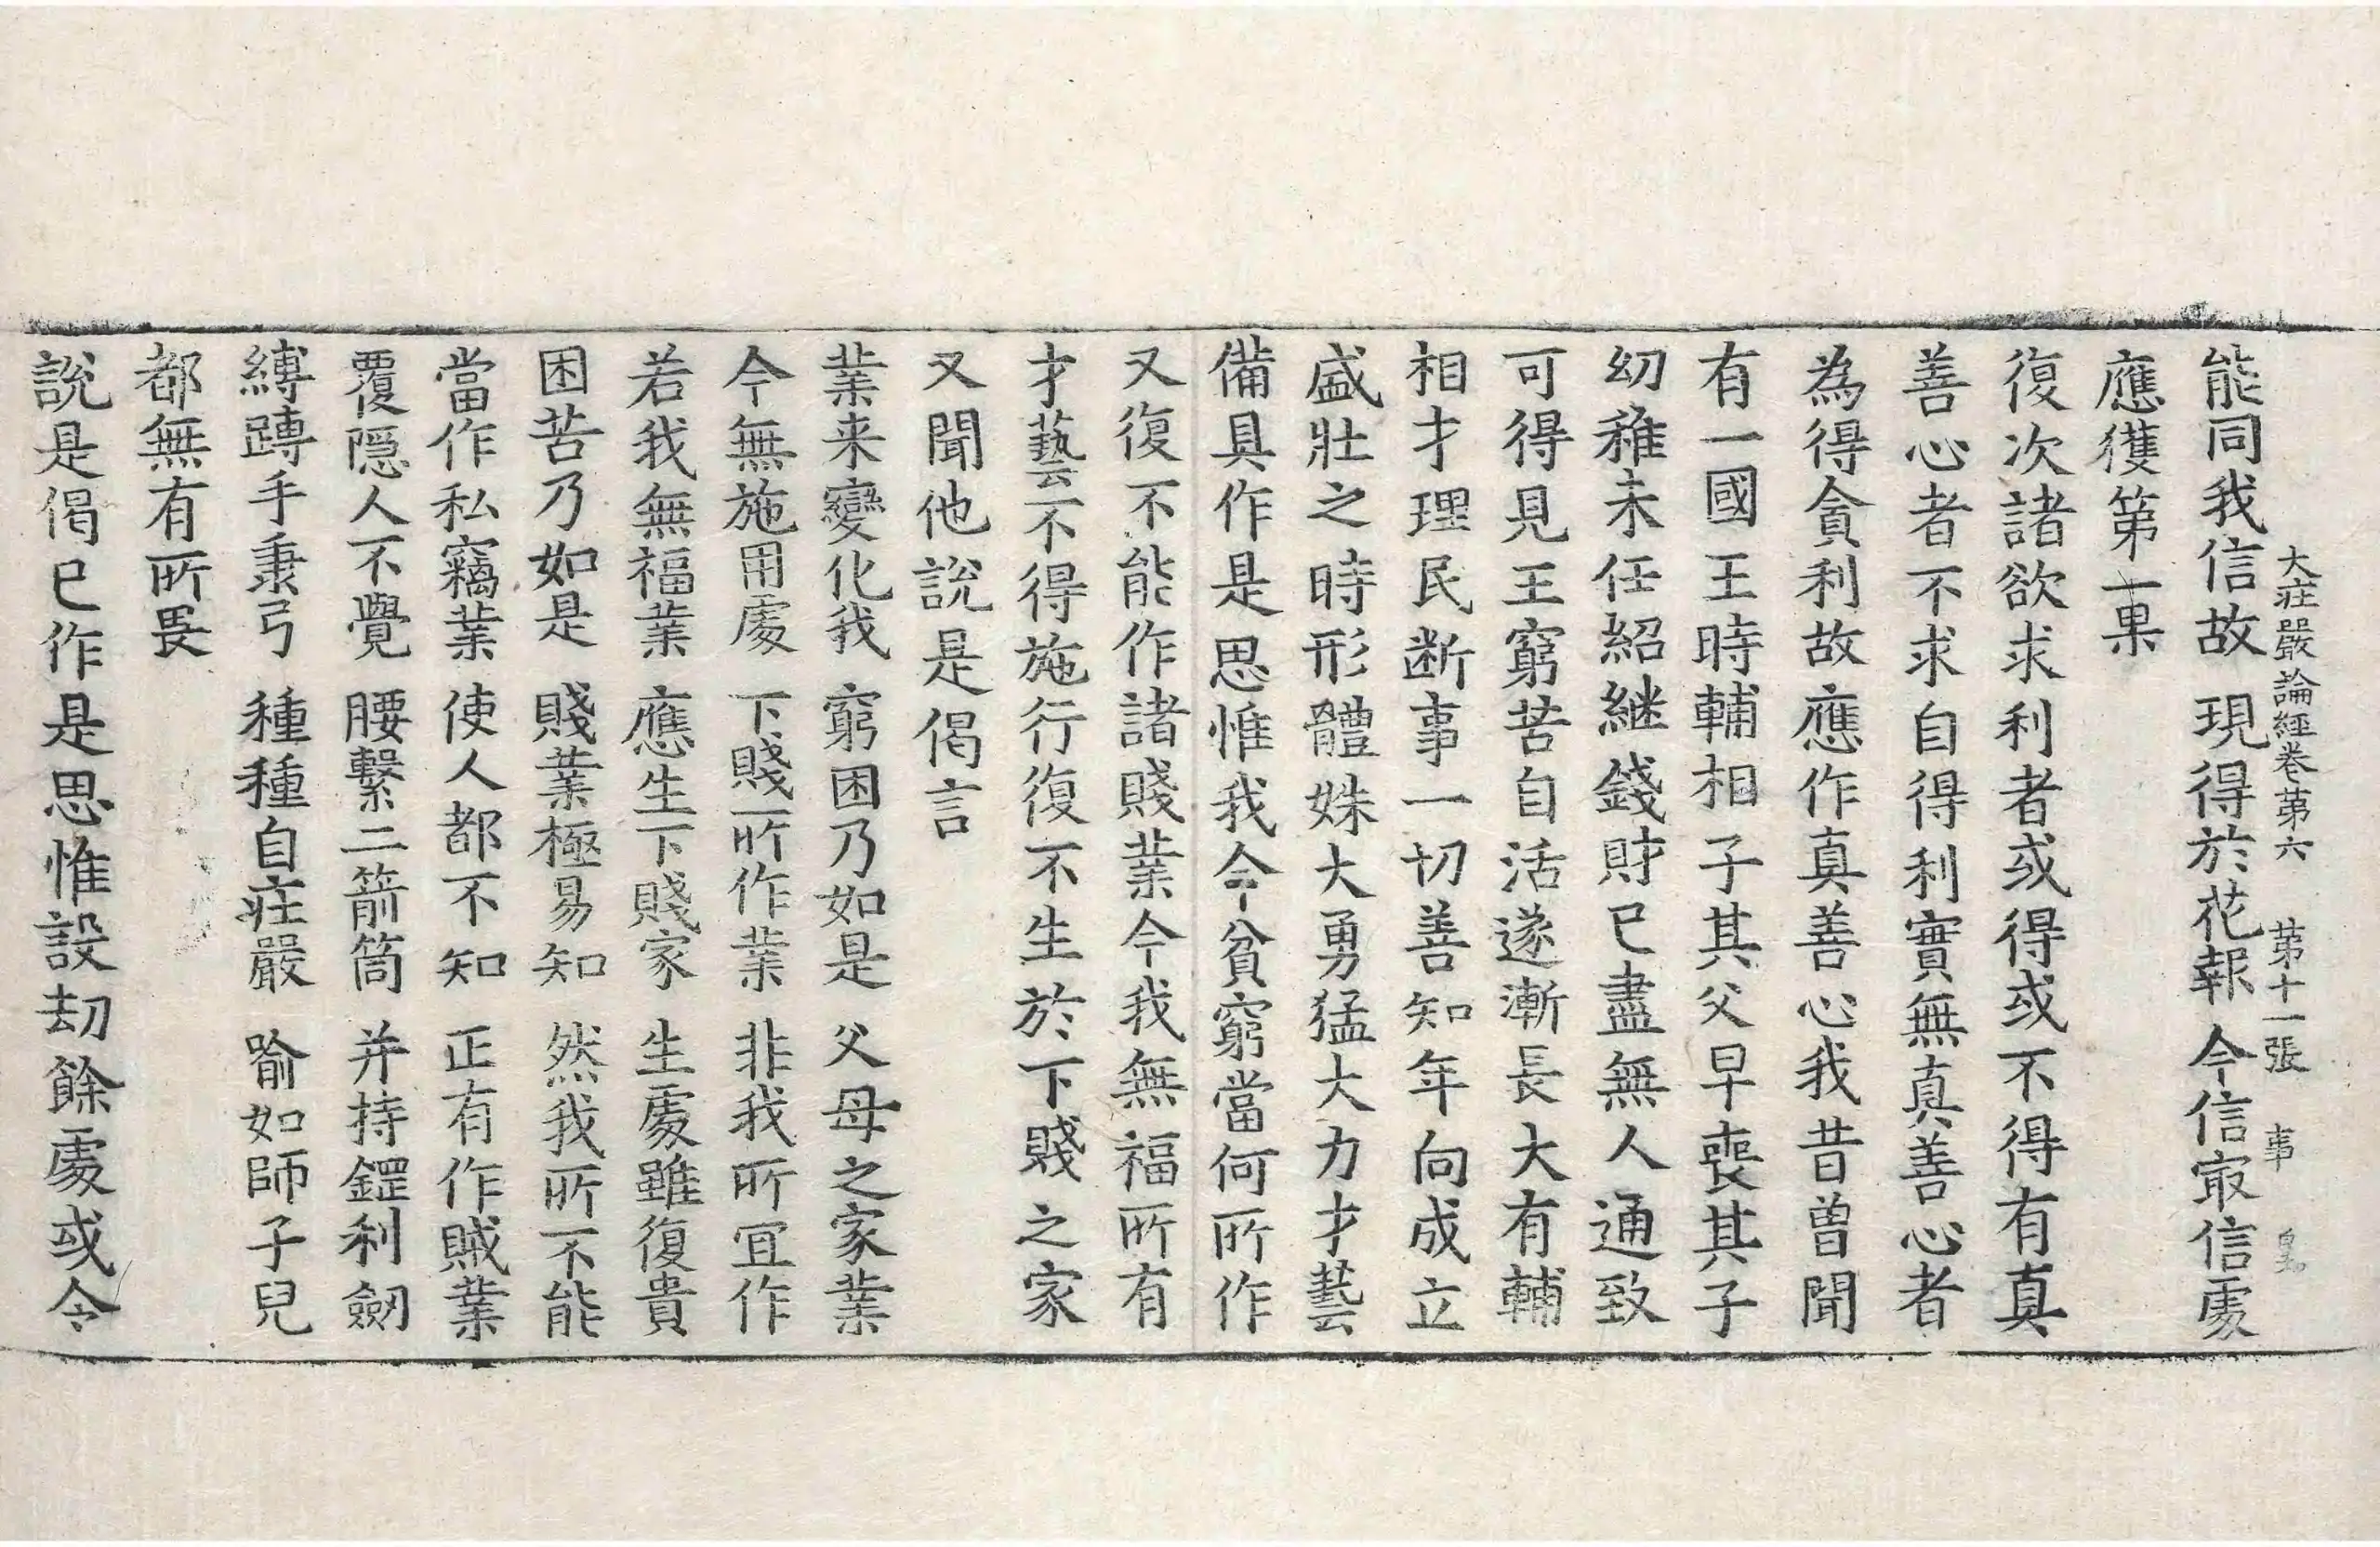 大莊嚴論經卷第六 第十一張 事
能同我信故 現得於花報 今信㝡信處
應獲第一果
復次諸欲求利者或得或不得有真
善心者不求自得利實無真善心者
為得貪利故應作真善心我昔曾聞
有一國王時輔相子其父早喪其子
幼稚未任紹継錢財已盡無人通致
可得見王窮苦自活遂漸長大有輔
相才理民断事一切善知年向成立
盛壯之時形體姝大勇猛大力才藝
備具作是思惟我今貧窮當何所作
又復不能作諸賤業今我無福所有
才藝不得施行復不生於下賤之家
又聞他說是偈言
業来變化我 窮困乃如是 父母之家業
今無施用處 下賤所作業 非我所冝作
若我無福業 應生下賤家 生處雖復貴
困苦乃如是 賤業極易知 然我所不能
當作私竊業 使人都不知 正有作賊業
覆隠人不覺 腰繫二箭筒 并持鋰利劒
縛䏝手秉弓 種種自莊嚴 喻如師子兒
都無有所畏
說是偈已作是思惟設劫餘處或令